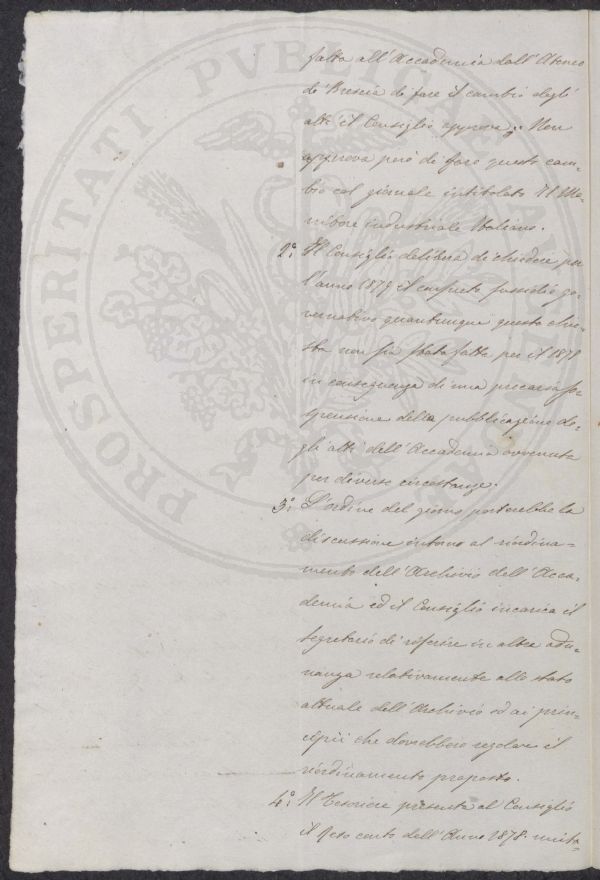 fatta all'Accademia dall'Ateneo
di Brescia di fare il cambio degli
atti il Consiglio approva; Non
approva però di fare questo cam-
bio col giornale intitolato Il Mo-
nitore industriale Italiano.
2.° Il Consiglio delibera di chiedere per
l'anno 1879 il consueto sussidio go-
vernativo quantunque questo
non sia stata fatta per il 1878
in conseguenza di una precaria so-
spensione della pubblicazione de-
gli atti dell'Accademia avvenuta
per diverse circostanze.
3.° L'ordine del giorno porterebbe la
discussione intorno al riordina-
mento dell'Archivio dell'Acca-
demia ed il Consiglio incarica il
segretario di riferire in altra adu-
nanza relativamente allo stato
attuale dell'Archivio ed ai prin-
cipii che dovrebbero regolare il
riordinamento proposto.
4.° Il Tesoriere presenta al Consiglio
il Reso conto dell'Anno 1878
PROSPERITATI PVBLICAE AVGENDAE